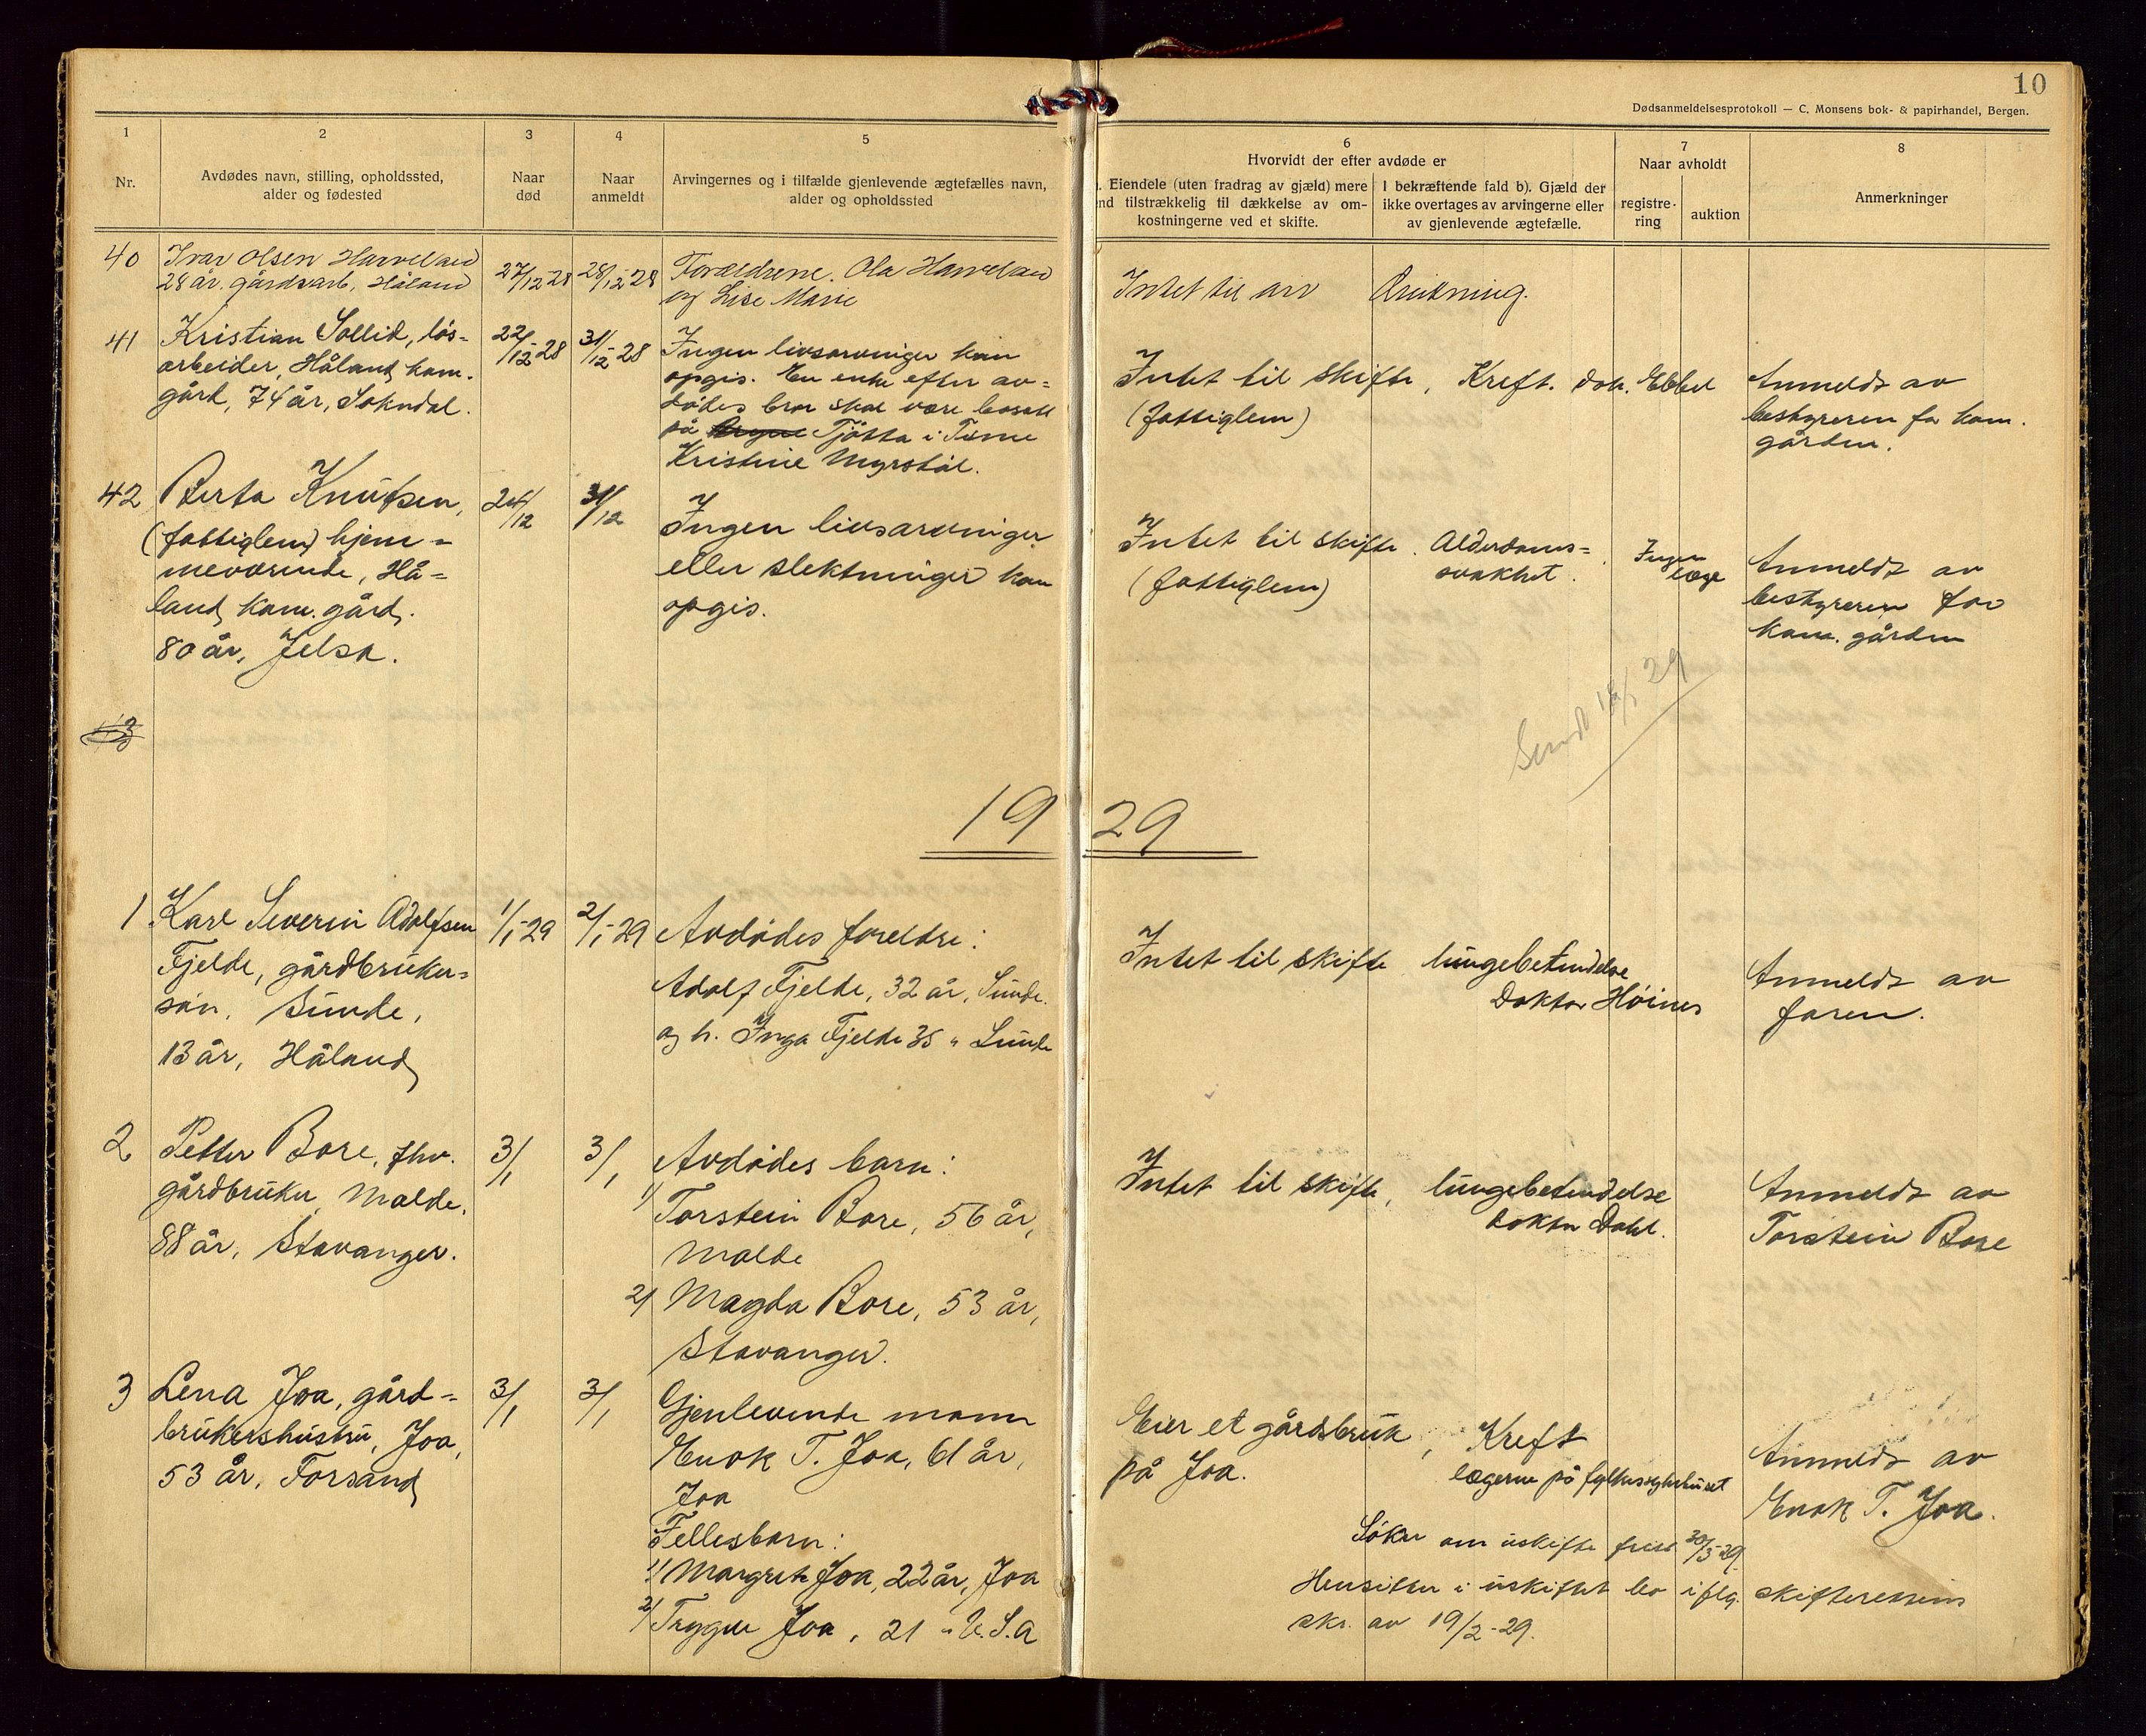 10
Dødsanmeldelsesprotokoll — C. Monsens bok- & papirhandel, Bergen.
1
2
3
4
5
6
7
8
Nr.
Avdødes navn, stilling, opholdssted,
alder og fødested
Naar
død
Naar
anmeldt
Arvingernes og i tilfælde gjenlevende ægtefælles navn,
alder og opholdssted
Hvorvidt der efter avdøde er
Eiendele (uten fradrag av gjæld) mere
end tilstrækkelig til dækkelse av om-
kostningerne ved et skifte.
I bekræftende fald b). Gjæld der
ikke overtages av arvingerne eller
av gjenlevende ægtefælle.
Naar avholdt
registre-
ring
auktion
Anmerkninger
40
Ivar Olsen Harveland
28 år. gårdsarb, Håland
27/12-28
28/12-28
Forældrene. Ola Harveland
og Lise Marie
Intet til arv
Drukning.
41
Kristian Sollid, løs-
arbeider, Håland kom.
gård, 74 år, Sokndal.
22/12-28
31/12-28
Ingen livsarvinger kan
opgis. En enke efter av-
dødes bror skal være bosatt
på Tjøtta i Time
Kristine Myrstøl.
Intet til skifte, Kreft. Dok. Ebbel
(fattiglem)
Anmeldt av
bestyreren for kom.
gården.
42
Berta Knutsen,
(fattiglem) hjem-
meværende, Hå-
land kom. gård.
80 år, Jelsa.
24/12
31/12
Ingen livsarvinger
eller slektninger kan
opgis.
Intet til skifte. Alderdoms-
(fattiglem) svakhet.
Ingen
læge
Anmeldt av
bestyreren for
kom. gården
43
Sendt 18/1 29
1929
1
Karl Severin Adolfsen
Fjelde, gårdbruker-
søn, Sunde,
13 år, Håland
1/1-29
2/1-29
Avdødes foreldre:
Adolf Fjelde, 32 år, Sunde.
og h. Inga Fjelde 35 " Sunde
Intet til skifte lungebetendelse
Doktor Høines
Anmeldt av
faren.
2
Petter Bore, fhv.
gårdbruker, Malde.
88 år, Stavanger.
3/1
3/1
Avdødes barn:
1/ Torstein Bore, 56 år,
Malde
2/ Magda Bore, 53 år,
Stavanger.
Intet til skifte, lungebetendelse
Doktor Dahl.
Anmeldt av
Torstein Bore
3
Lena Joa, gård-
brukershustru, Joa,
53 år, Forsand
3/1
3/1
Gjenlevende mann
Enok T. Joa, 61 år,
Joa
Fellesbarn:
1/ Margrete Joa, 22 år, Joa
2/ Trygve Joa, 21 " U.S.A
Eier et gårdsbruk, Kreft
på Joa.
lægerne på fylkessykehuset
Anmeldt av
Enok T. Joa.
Søker om uskifte frist 30/3-29.
Hensitter i uskiftet bo iflg. skifterettens
skr. av 19/2-29.